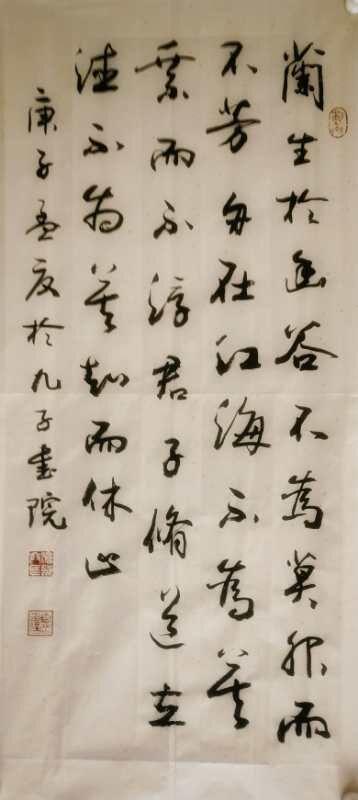 蘭生於幽谷不為莫服而
不芳舟在江海不為莫
乘而不浮君子脩道立
德不為莫知而休止
庚子孟夏於九子書院